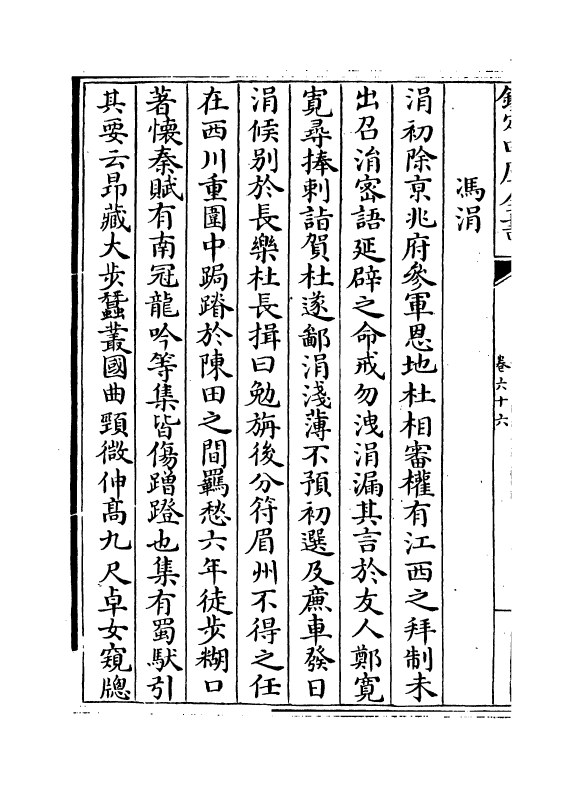 欽定四庫全書
卷六十六
馮涓
涓初除京兆府參軍恩地杜相審權有江西之拜制未
出召涓密語延辟之命戒勿洩涓漏其言於友人鄭賨
賨尋捧刺詣賀杜遂鄙涓淺薄不預初選及廉車發日
涓候别於長樂杜長揖曰勉旃後分符眉州不得之任
在西川重圍中跼蹐於陳田之間羈愁六年徒步糊口
著懐秦賦有南冠龍吟等集皆傷蹭蹬也集有蜀馱引
其要云昂藏大步蠶叢國曲頸微伸髙九尺卓女窺牕